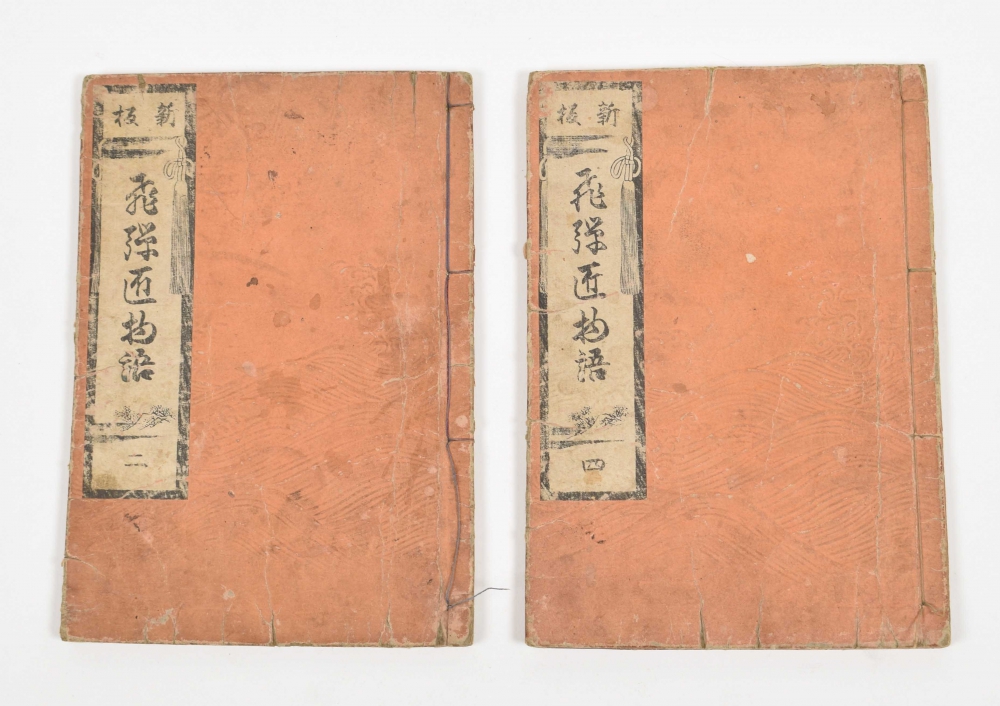 新板
飛弾匠物語
二
新板
飛弾匠物語
四